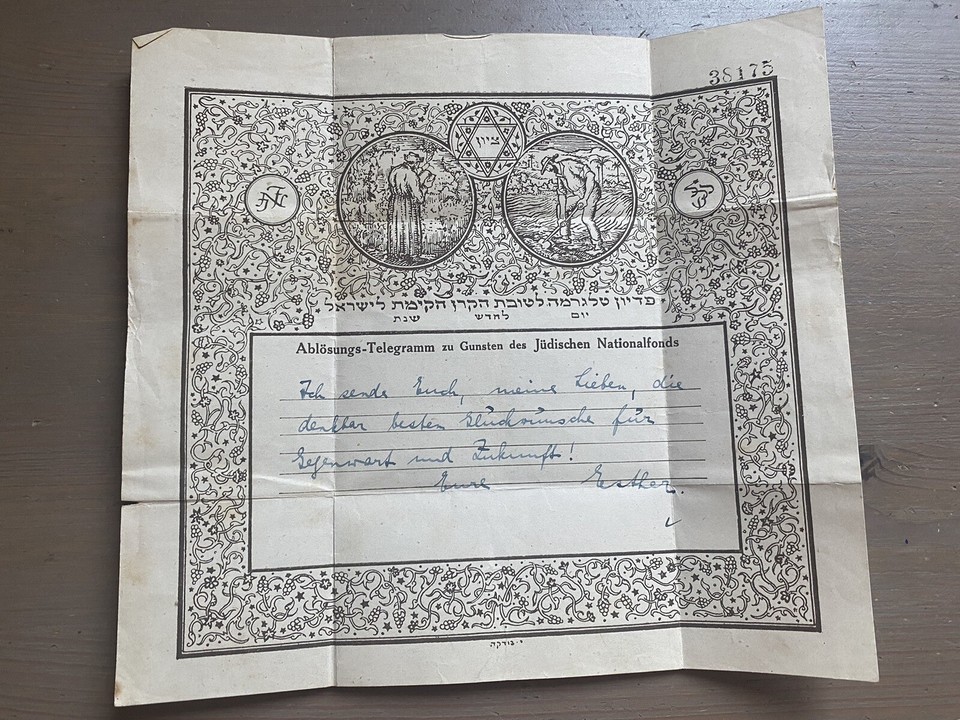 38175
ציון
פדיון טלגרמה לטובת הקרן הקימת לישראל
יום לחדש שנת
Ablösungs-Telegramm zu Gunsten des Jüdischen Nationalfonds
Ich sende Euch, meine Lieben, die
denkbar besten Glückwünsche für
Gegenwart und Zukunft!
Eure Esther.